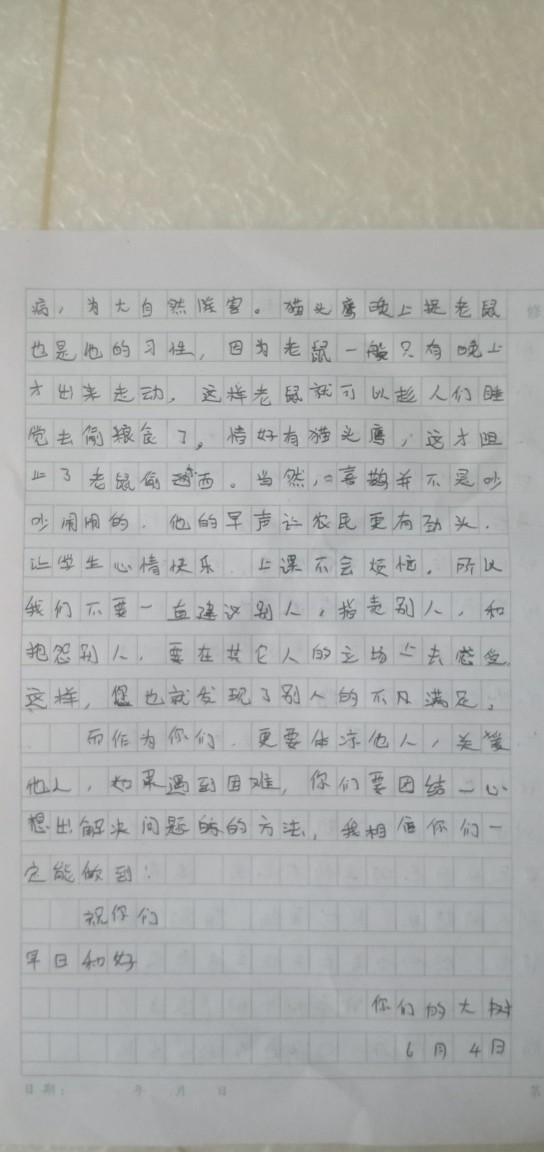 病，为大自然除害。猫头鹰晚上捉老鼠
也是他的习性，因为老鼠一般只有晚上
才出来走动，这样老鼠就可以趁人们睡
觉去偷粮食了。恰好有猫头鹰，这才阻
止了老鼠偷东西。当然，喜鹊并不是吵
吵闹闹的，他的早声让农民更有劲头，
让学生心情快乐，上课不会烦恼。所以
我们不要一直建议别人，指责别人，和
抱怨别人，要在其它人的立场上去感受，
这样，您也就发现了别人的不凡满足，
而作为你们，更要体凉他人，关爱
他人，如果遇到困难，你们要团结一心
想出解决问题的方法，我相信你们一
定能做到！
祝你们
早日和好
你们的大树
6月4日
日期： 年 月 日
第